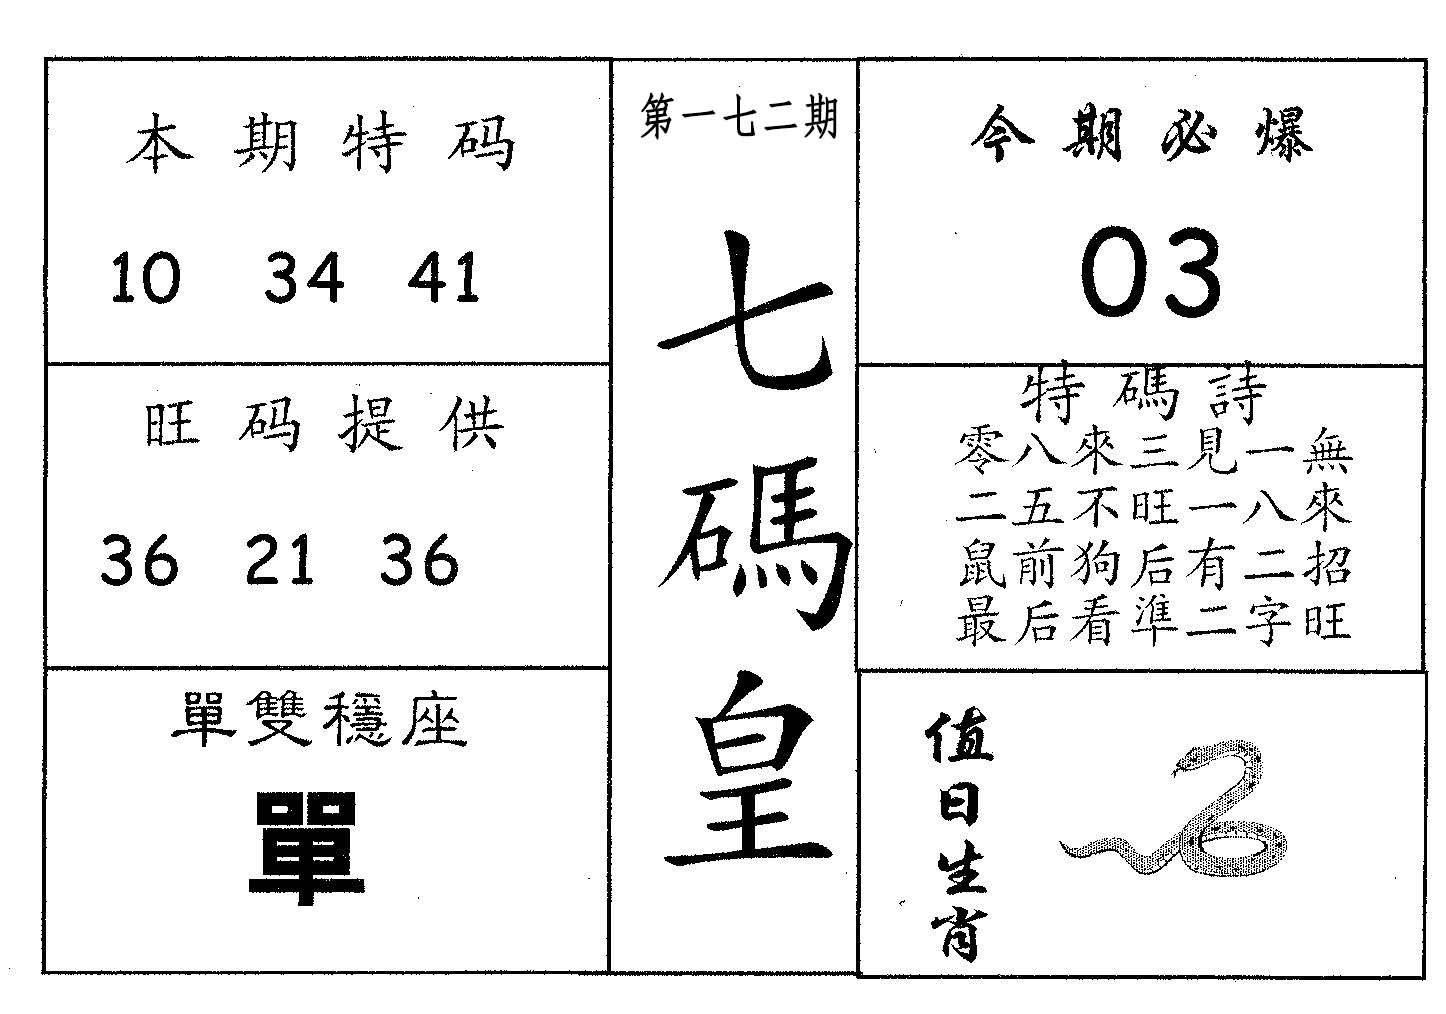 本期特码
10 34 41
旺码提供
36 21 36
單雙穩座
單
第一七二期
七
碼
皇
今期必爆
03
特碼詩
零八來三見一無
二五不旺一八來
鼠前狗后有二招
最后看準二字旺
值
日
生
肖